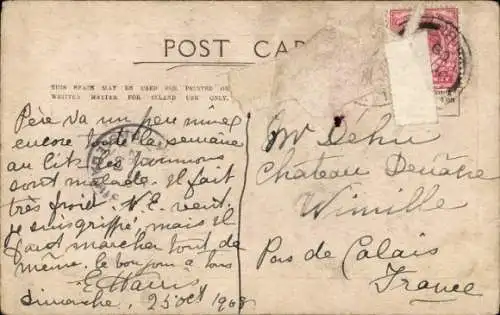 POST CAR
THIS SPACE MAY BE USED FOR PRINTED OR
WRITTEN MATTER FOR INLAND USE ONLY.
Père va un peu mieux
encore toute la semaine
au lit. Les
sont malade. il fait
très froid. N.E. vent.
je suis grippé, mais il
faut marcher tout de
même. le bonjour à tous
E Harris
Dimanche, 25 Oct 1908
Mr Déhu
Chateau Denâcre
Wimille
Pas de Calais
France